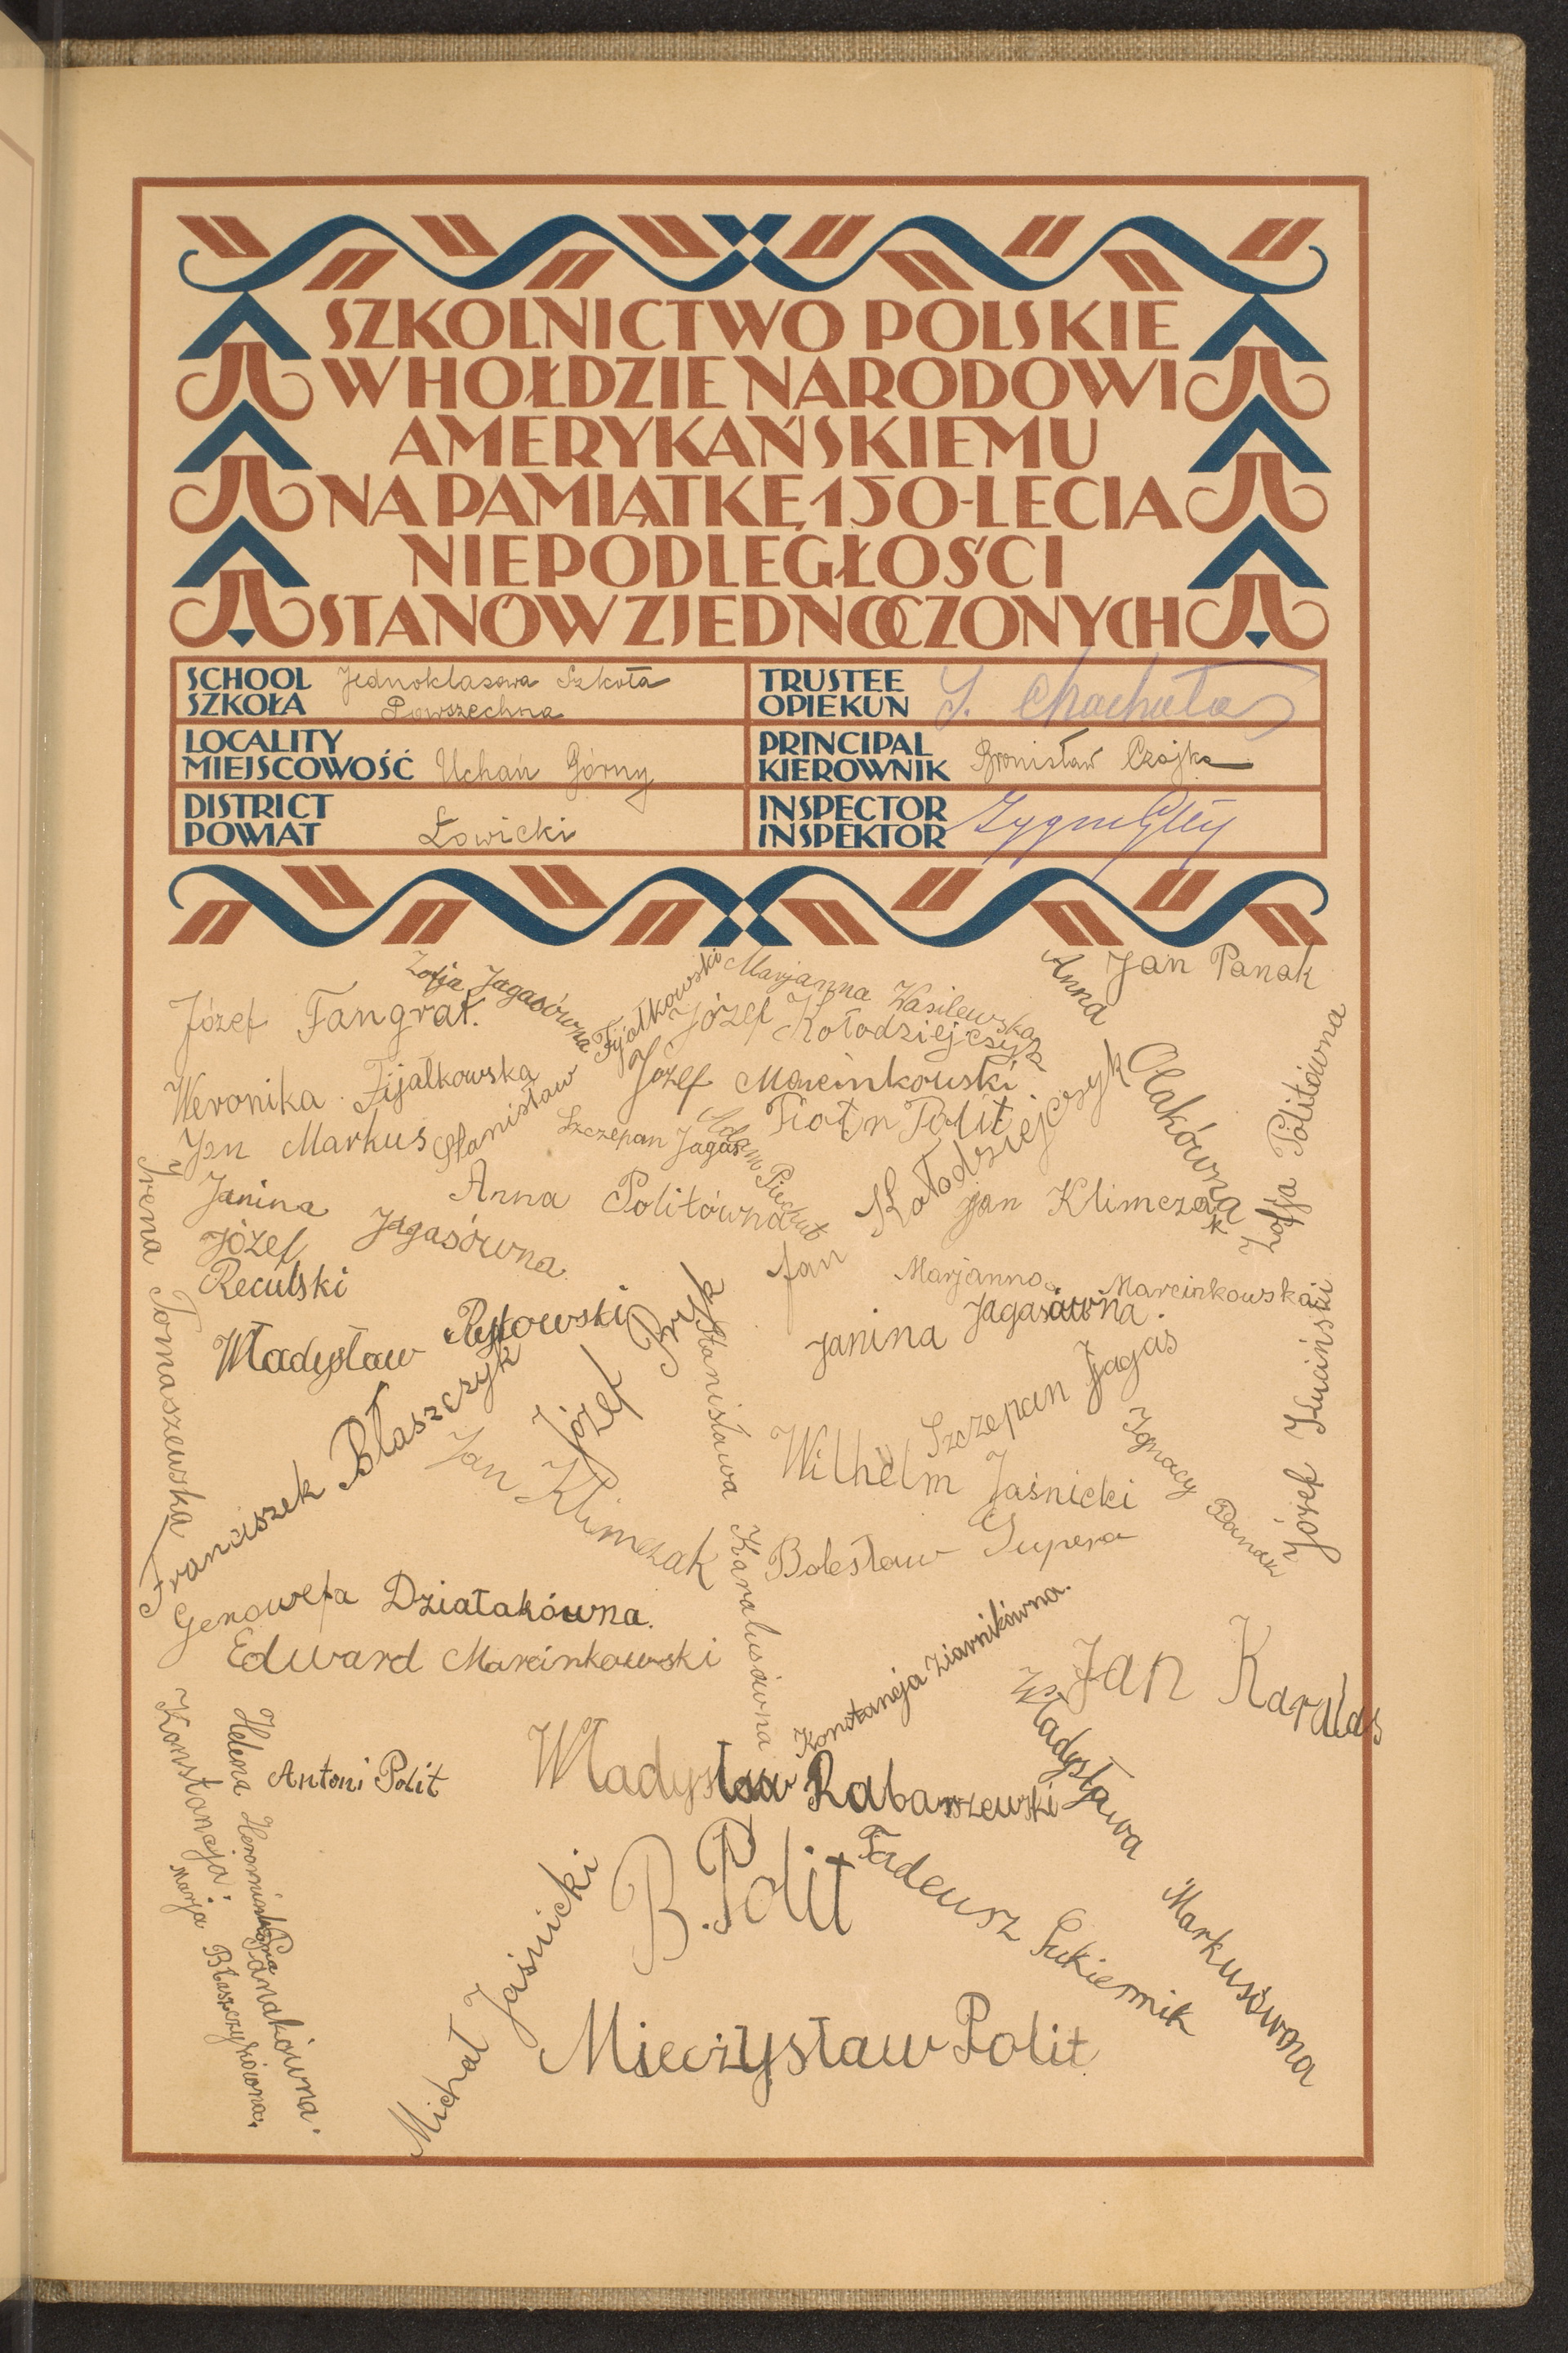 SZKOLNICTWO POLSKIE
W HOŁDZIE NARODOWI
AMERYKAŃSKIEMU
NA PAMIĄTKĘ 150-LECIA
NIEPODLEGŁOŚCI
STANÓW ZJEDNOCZONYCH
SCHOOL
SZKOŁA
Jednoklasowa Szkoła
Powszechna
TRUSTEE
OPIEKUN
LOCALITY
MIEJSCOWOŚĆ
Uchań Górny
PRINCIPAL
KIEROWNIK
Bronisław Czajka
DISTRICT
POWIAT
Łowicki
INSPECTOR
INSPEKTOR
Józef Fangrat.
Zofja Jagasówna
Stanisław Fijołkowski
Marjanna Wasilewska
Józef Kołodziejczyk
Anna Olakówna
Jan Panak
Weronika Fijałkowska
Józef Marcinkowski
Jan Markus
Szczepan Jagas
Adam Piechut
Polit
Jan Kołodziejczyk
Zofja Politówna
Irena Tomaszewska
Janina Jagasówna
Anna Politówna
Jan Klimczak
Józef
Reculski
Marjanna Marcinkowska
Władysław
Janina Jagasówna.
Józef Bryk
Stanisława Karalusówna
Szczepan Jagas
Józef Kuciński
Franciszek Błaszczyk
Jan Klimczak
Wilhelm Jaśnicki
Ignacy Panak
Bolesław Gupera
Genowefa Działakówna.
Edward Marcinkowski
Konstancja Ziarnikówna.
Jan Karalus
Władysława Markusówna
Konstancja Panakówna.
Helena
Antoni Polit
Władysław Rabarszewski
Marja Błaszczykówna.
B. Polit
Tadeusz Sukiennik
Michał Jaśnicki
Mieczysław Polit